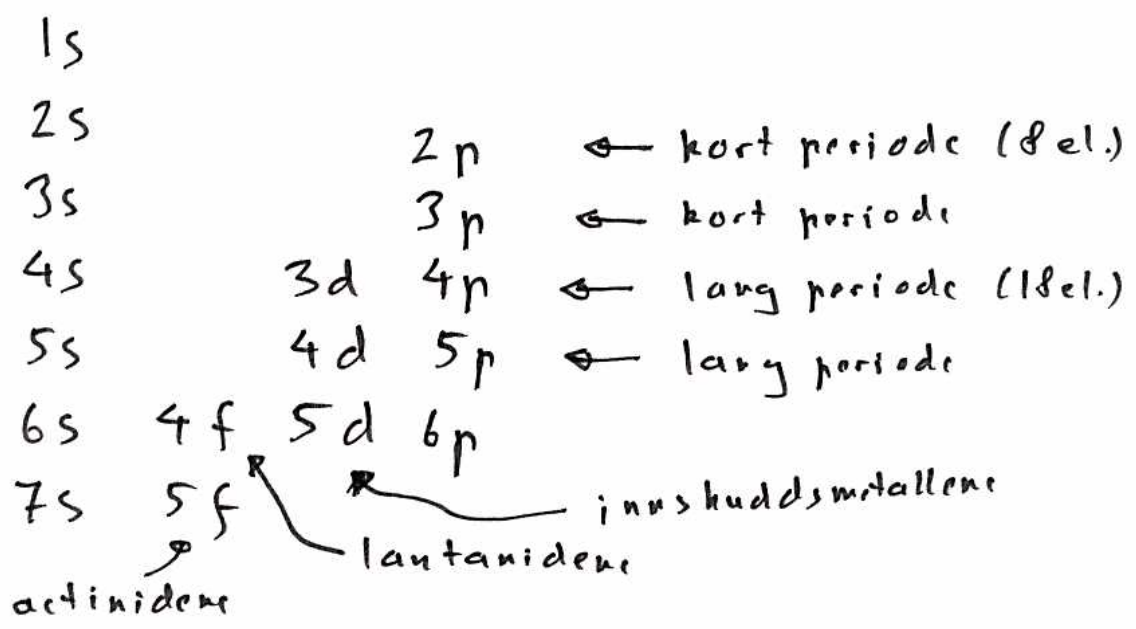 1s
2s 2p ← kort periode (8 el.)
3s 3p ← kort periode
4s 3d 4p ← lang periode (18 el.)
5s 4d 5p ← lang periode
6s 4f 5d 6p
7s 5f innskuddsmetallene
lantanidene
actinidene